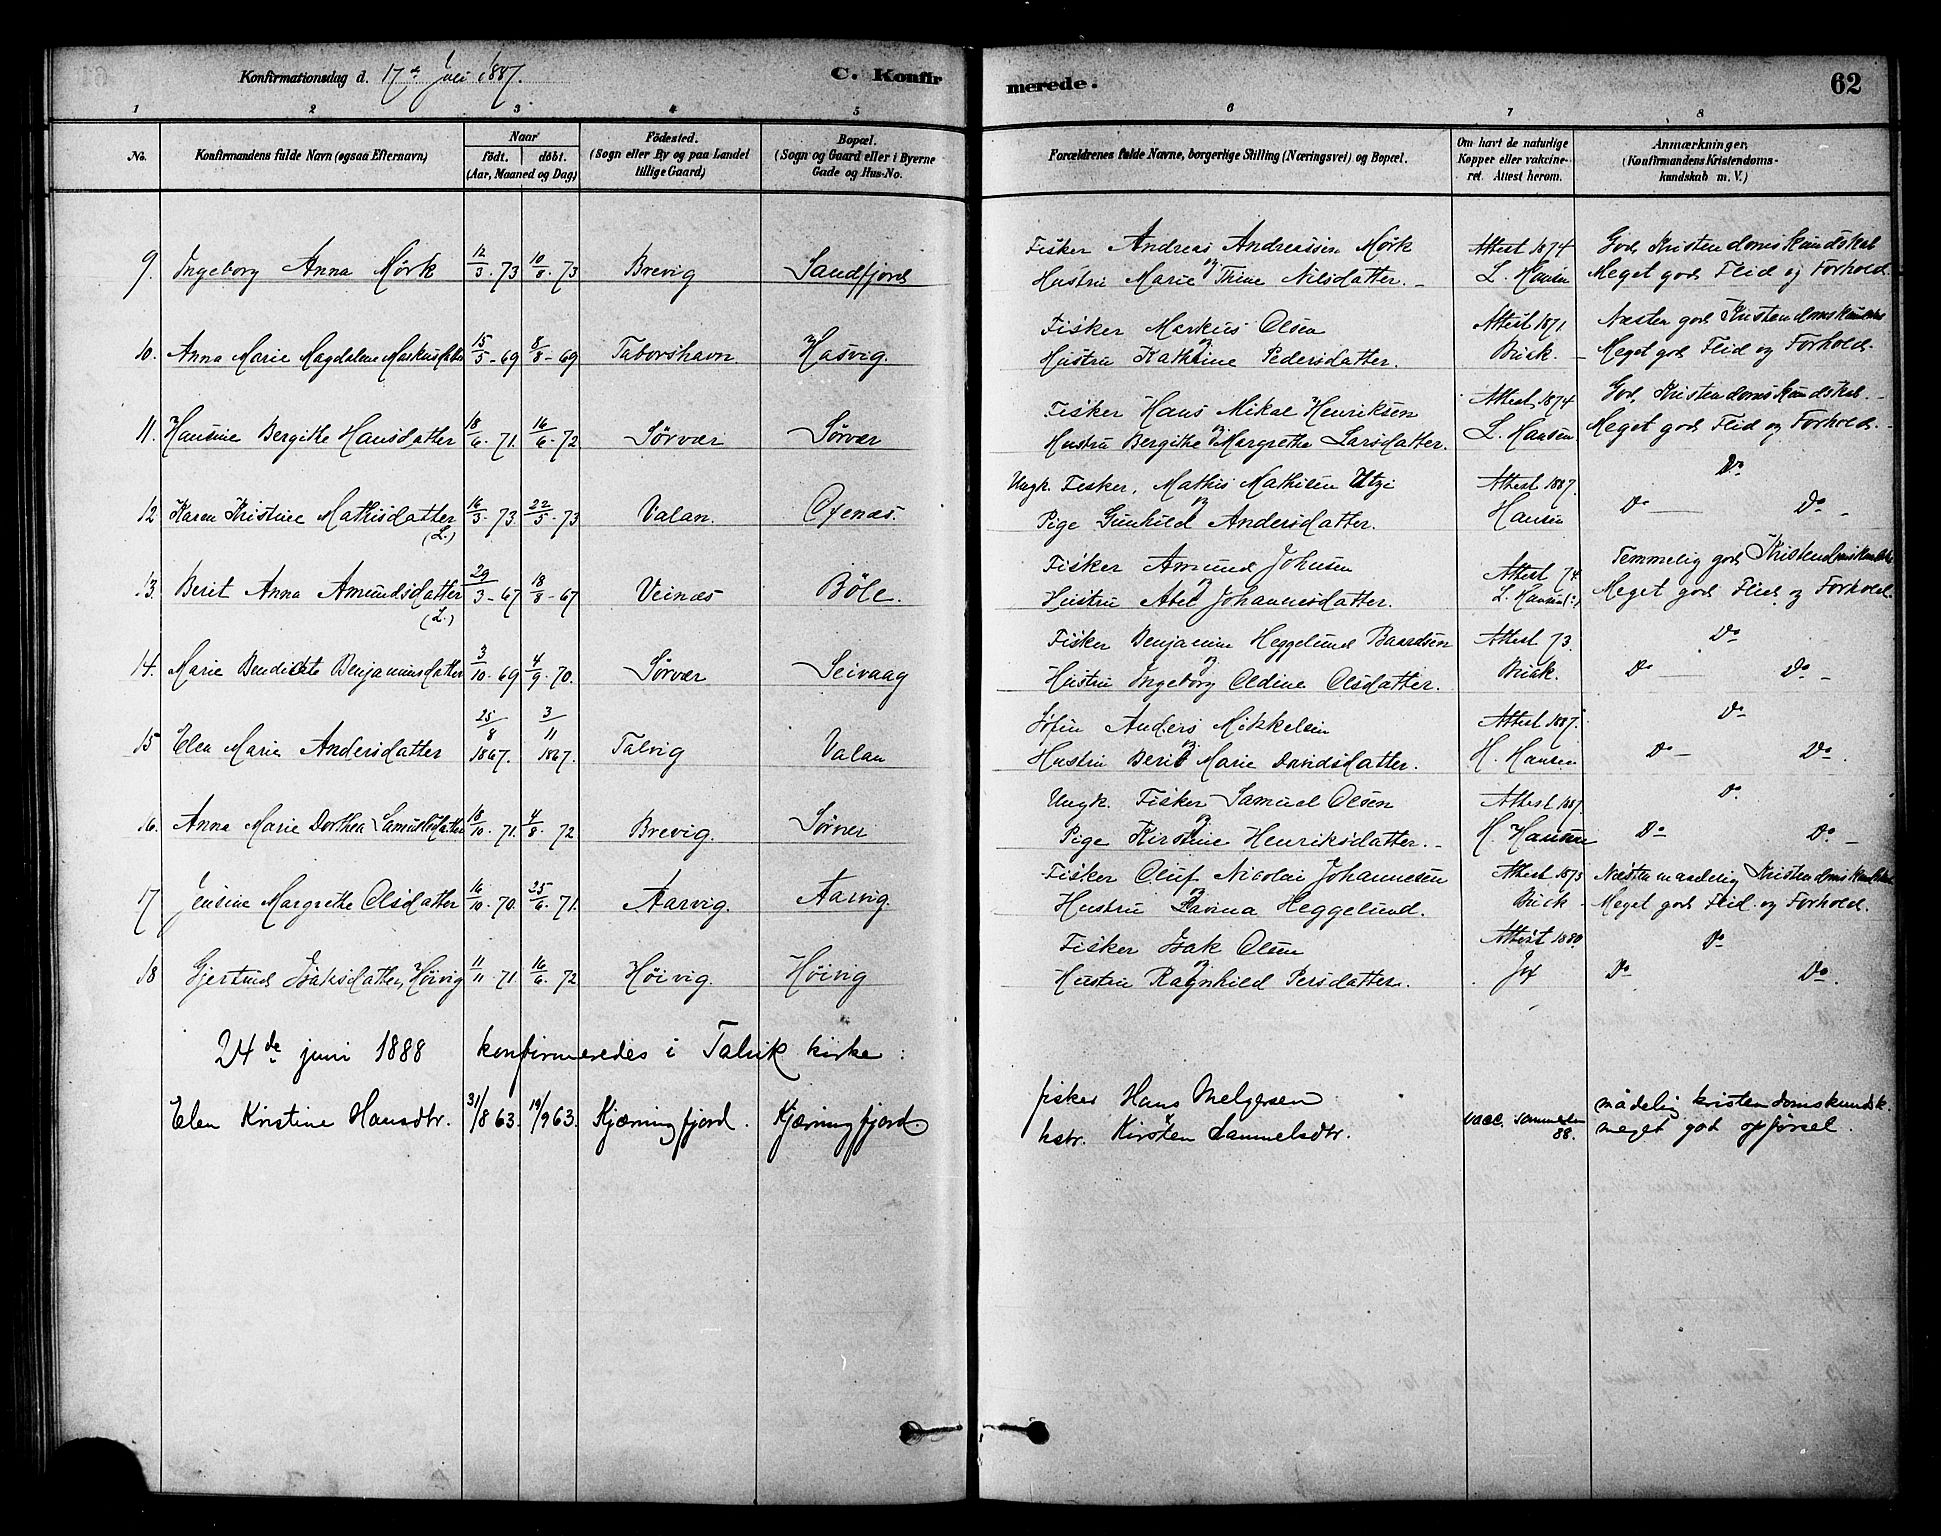 Konfirmationsdag d. 17de Juli 1887.
C. Konfirmerede.
62
1 2 3 4 5 6 7 8
No. Konfirmandens fulde Navn (ogsaa Efternavn) Naar födt. döbt. (Aar, Maaned og Dag) Födested. (Sogn eller By og paa Landet tillige Gaard) Bopæl. (Sogn og Gaard eller i Byerne Gade og Hus-No. Forældrenes fulde Navne, borgerlige Stilling (Næringsvei) og Bopæl. Om havt de naturlige Kopper eller vakcineret. Attest herom. Anmærkninger. (Konfirmandens Kristendomskundskab m. V.)
Fisker Andreas Andreassen Mørk Attest 1874 God Kristendomskundskab
9. Ingeborg Anna Mörk 12/3-73 10/8-73 Brevig Sandfjord og Hustru Marie Trine Nilsdatter. L. Hansen Meget god Flid og Forhold.
Fisker Markus Olsen Attest 1871. Næsten god Kristendomskundsk
10. Anna Marie Magdalene Markusdatter 15/5-69 8/8-69 Taborshavn Hasvig. og Hustru Kathrine Pedersdatter. Buck. Meget god Flid og Forhold.
Fisker Hans Mikal Henriksen Attest 1874 God Kristendomskundskab.
11. Hansine Bergithe Hansdatter 18/6-71. 16/6-72 Sörvær Sörvær og Hustru Bergithe Margrethe Larsdatter. L. Hansen Meget god Flid og Forhold.
Ungk. Fisker, Mathis Mathisen Utzi Attest 1887. Do
12 Karen Kristine Mathisdatter (L.) 16/3-73. 22/5-73 Valan. Oxenæs. og Pige Gunhild Andersdatter. Hansen Do Do
Fisker Amund Johnsen Attest 74. Temmelig god Kristendomskundsk
13. Berit Anna Amundsdatter (L.) 29/3-67 18/8-67 Veinæs Böle. og Hustru Abel Johannesdatter. L. Hansen(:) Meget god Flid og Forhold.
Fisker Benjamin Heggelund Baardsen Attest 73. Do
14. Marie Bendicte Benjaminsdatter 3/10-69 4/9-70. Sörvær Seivaag og Hustru Ingeborg Oldine Olsdatter. Buck. Do Do
Anders Mikkelsen Attest 1887. Do
15 Elen Marie Andersdatter 25/8 1867. 3/11 1867. Talvig Valan og Hustru Berit Marie Davidsdatter. H. Hansen Do Do.
Ungk. Fisker Samuel Olsen Attest 1887 Do
16. Anna Marie Dorthea Samuelsdatter 18/10-71. 4/8-72 Brevig. Sörvær og Pige Kirstine Henriksdatter. H. Hansen Do Do
Fisker Oluf Nicolai Johannesen Attest 1873 Næsten maadelig Kristendomskundskab
17 Jensine Margrethe Olsdatter 16/10-70. 25/6-71. Aarvig. Aarvig. og Hustru Lavina Heggelund. Buck Meget god Flid og Forhold.
Fisker Isak Olsen Attest 1880 Do
18 Gjertrud Isaksdatter, Höivig 11/11-71. 16/6-72 Höivig. Höivig og Hustru Ragnhild Persdatter. Do Do.
24de juni 1888 konfirmeredes i Talvik kirke:
fisker Hans Melgersen mådelig kristendomskundsk.
Elen Kristine Hansdtr. 31/8 63. 19/9 63. Kjærringfjord. Kjærringfjord. hstr. Kirsten Sammelsdtr. vacc. sommeren 88. meget god opførsel.